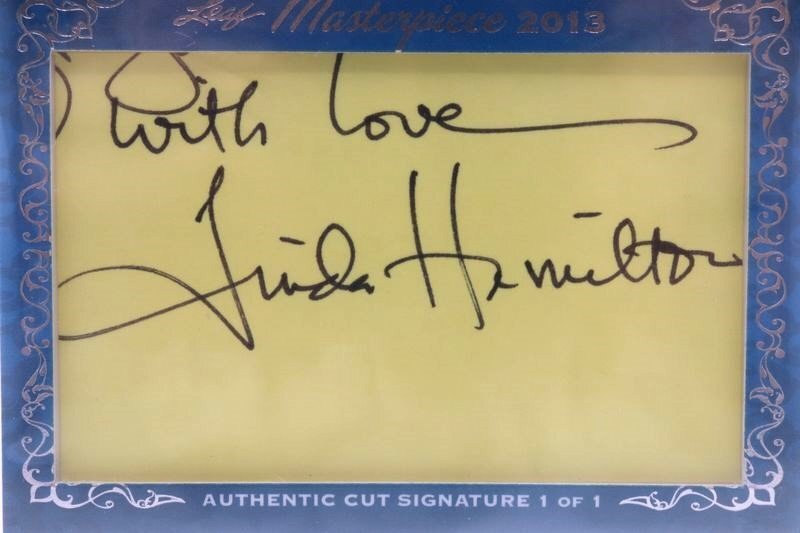 Leaf Masterpiece 2013
With Love
Linda Hamilton
AUTHENTIC CUT SIGNATURE 1 OF 1